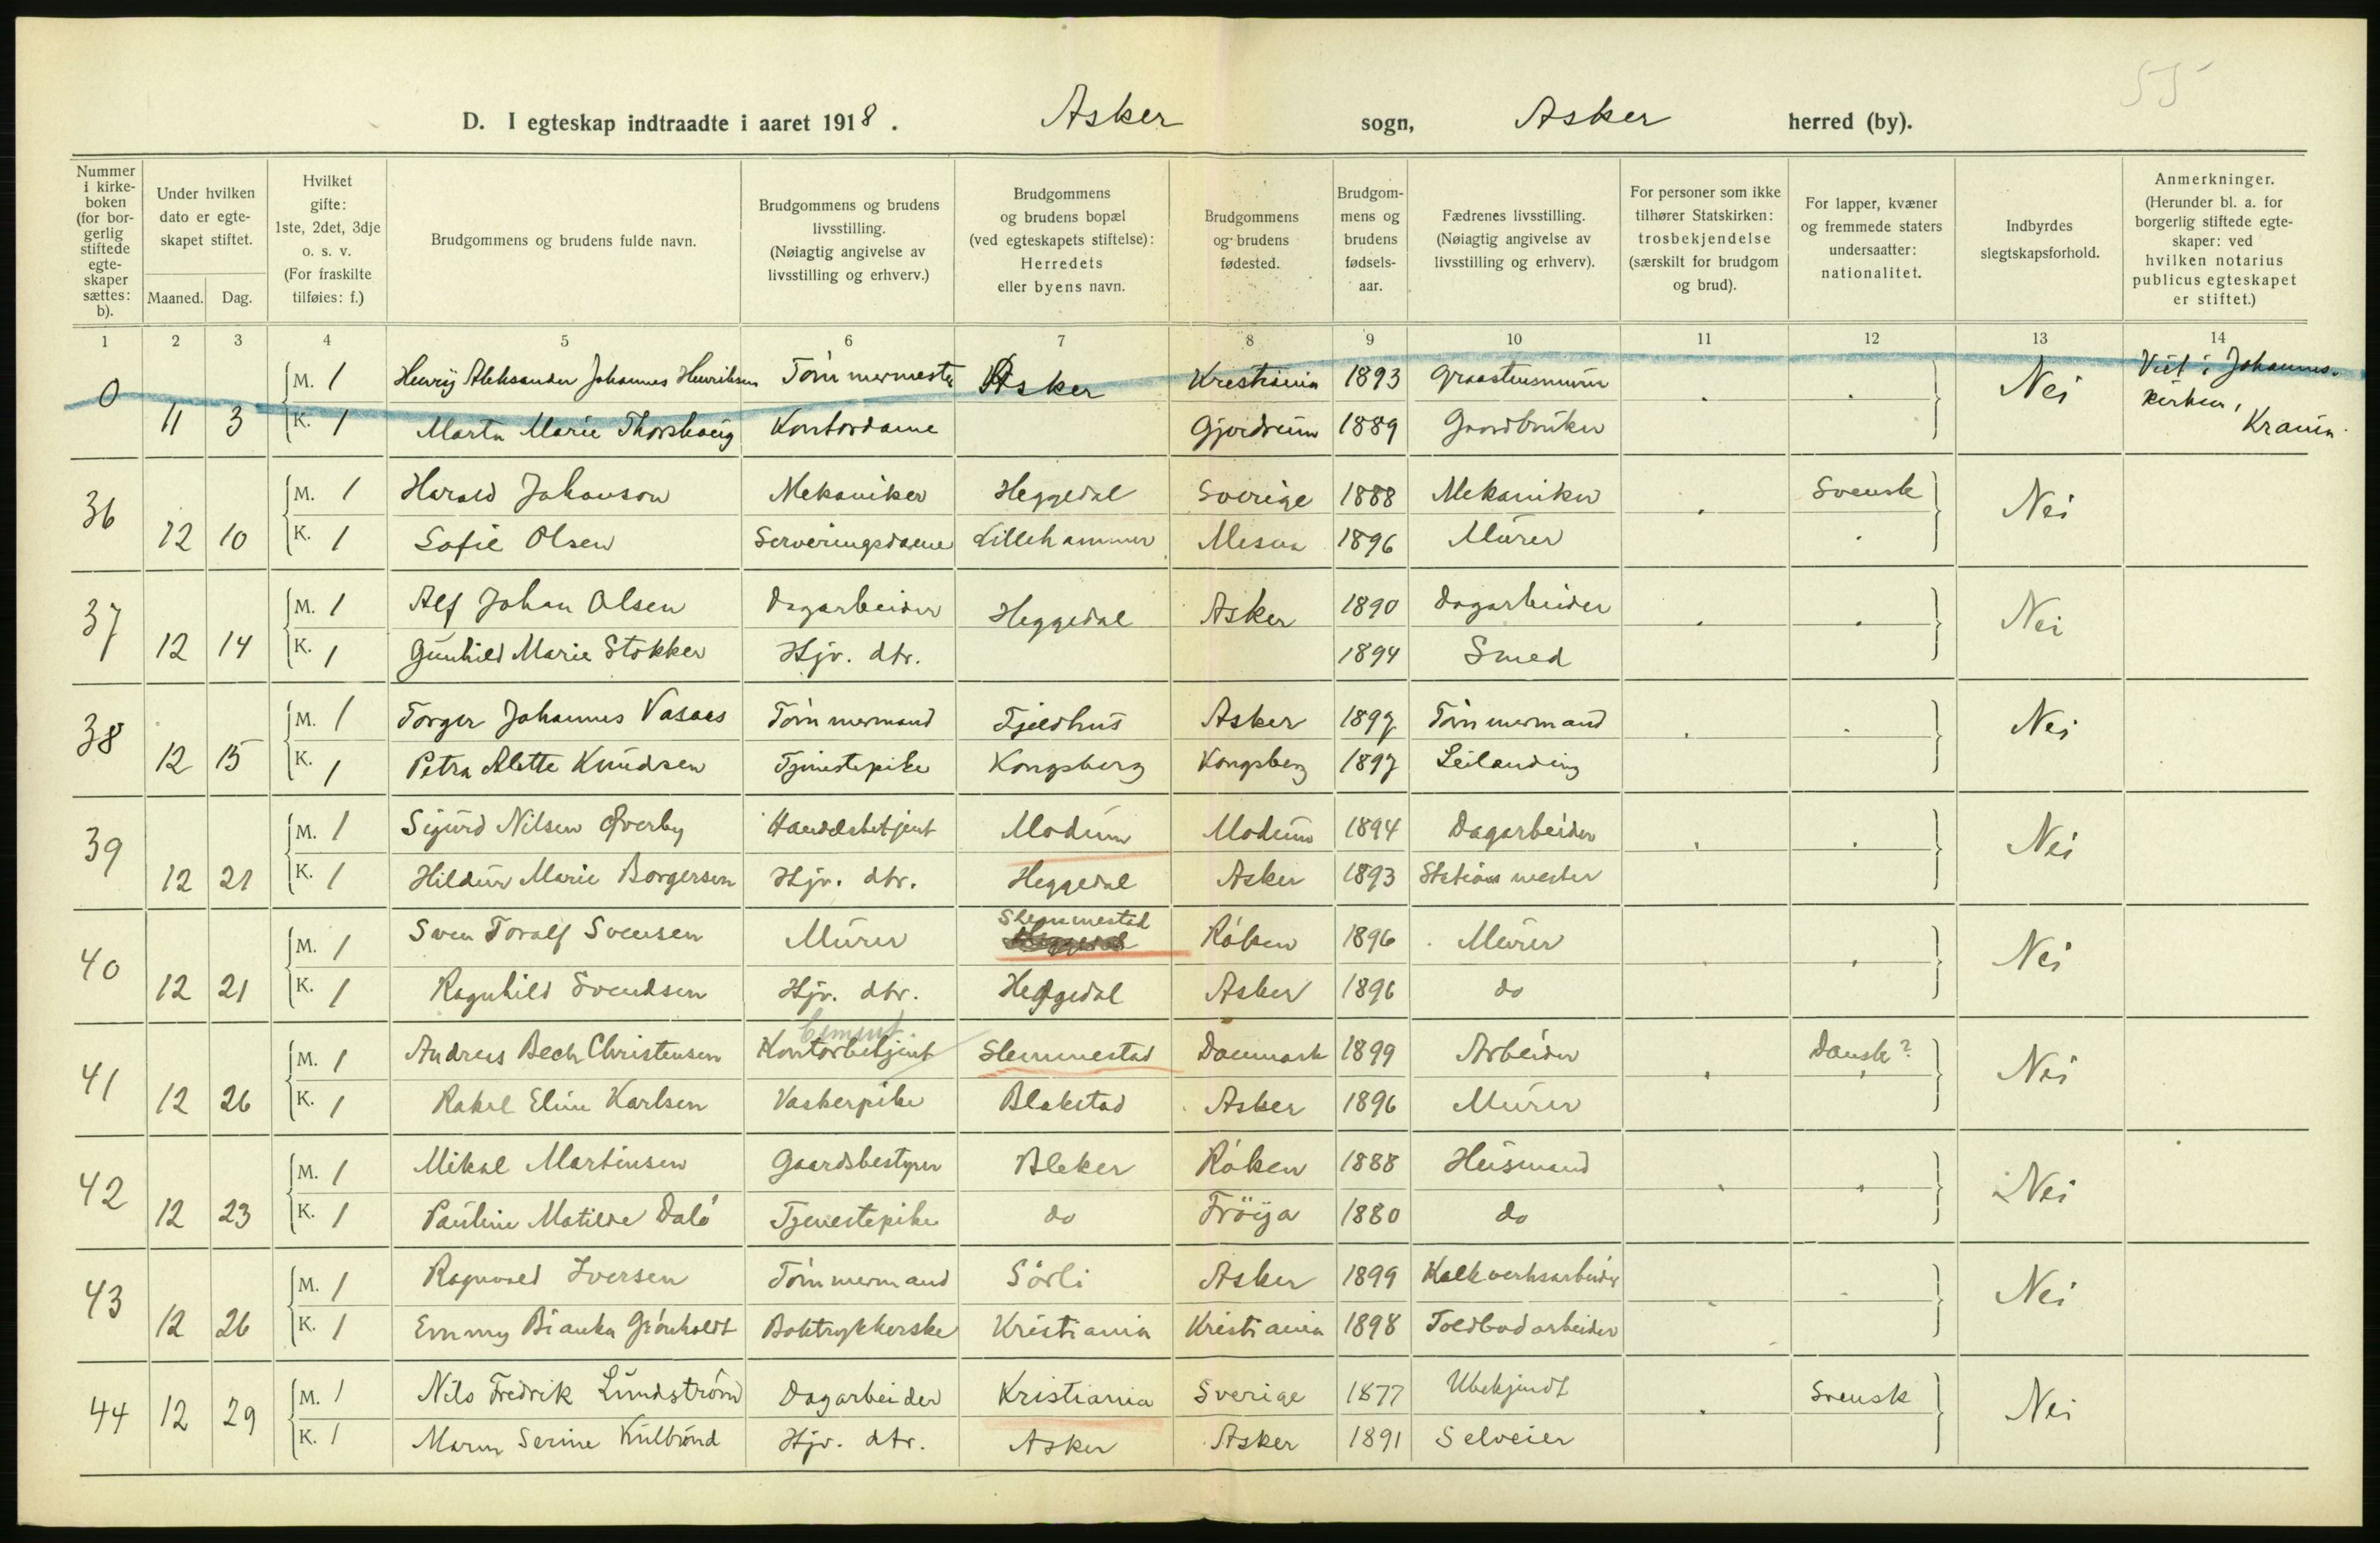 55
D. I egteskap indtraadte i aaret 1918. Asker sogn, Asker herred (by).
Nummer i kirke-boken (for bor-gerlig stiftede egte-skaper sættes: b).
Under hvilken dato er egte-skapet stiftet.
Maaned. Dag.
Hvilket gifte: 1ste, 2det, 3dje o. s. v. (For fraskilte tilføies: f.)
Brudgommens og brudens fulde navn.
Brudgommens og brudens livsstilling. (Nøiagtig angivelse av livsstilling og erhverv.)
Brudgommens og brudens bopæl (ved egteskapets stiftelse): Herredets eller byens navn.
Brudgommens og brudens fødested.
Brudgom-mens og brudens fødsels-aar.
Fædrenes livsstilling. (Nøiagtig angivelse av livsstilling og erhverv).
For personer som ikke tilhører Statskirken: trosbekjendelse (særskilt for brudgom og brud).
For lapper, kvæner og fremmede staters undersaatter: nationalitet.
Indbyrdes slegtskapsforhold.
Anmerkninger. (Herunder bl. a. for borgerlig stiftede egte-skaper: ved hvilken notarius publicus egteskapet er stiftet.)
1 2 3 4 5 6 7 8 9 10 11 12 13 14
0 M. 1 Henry Aleksander Johannes Henriksen Tømmermester Asker Kristiania 1893 Graastensmurer Nei Viet i Johannes-
11 3 K. 1 Marta Marie Thorshaug Kontordame Gjerdrum 1889 Gaardbruker kirken, Krania.
36 M. 1 Harald Johanson Mekaniker Heggedal Sverige 1888 Mekaniker Svensk Nei
12 10 K. 1 Sofie Olsen Serveringsdame Lillehammer Mesna 1896 Murer
37 M. 1 Alf Johan Olsen Dagarbeider Heggedal Asker 1890 Dagarbeider Nei
12 14 K. 1 Gunhild Marie Stokker Hjv. dtr. 1894 Smed
38 M. 1 Torger Johannes Vasaas Tømmermand Fjeldhus Asker 1897 Tømmermand Nei
12 15 K. 1 Petra Alette Knudsen Tjenestepike Kongsberg Kongsberg 1897 Leilending
39 M. 1 Sigurd Nilsen Øverby Handelsbetjent Modum Modum 1894 Dagarbeider Nei
12 21 K. 1 Hildur Marie Borgersen Hjv. dtr. Heggedal Asker 1893 Stationsmester
40 M. 1 Sven Toralf Svensen Murer Slemmestad Røken 1896 Murer Nei
12 21 K. 1 Ragnhild Svendsen Hjv. dtr. Heggedal Asker 1896 do
Cement
41 M. 1 Andreas Bech Christensen Kontorbetjent Slemmestad Danmark 1899 Arbeider Dansk? Nei
12 26 K. 1 Rakel Eline Karlsen Vaskerpike Blakstad Asker 1896 Murer
42 M. 1 Mikal Martinsen Gaardsbestyrer Bleker Røken 1888 Husmand Nei
12 23 K. 1 Pauline Matilde Dalø Tjenestepike do Frøya 1880 do
43 M. 1 Ragnvald Iversen Tømmermand Sørli Asker 1899 Kalkverksarbeider Nei
12 26 K. 1 Emmy Bianka Grönholdt Boktrykkerske Kristiania Kristiania 1898 Toldbodarbeider
44 M. 1 Nils Fredrik Lundström Dagarbeider Kristiania Sverige 1877 Ubekjendt Svensk Nei
12 29 K. 1 Maren Serine Kulbrønd Hjv. dtr. Asker Asker 1891 Selveier